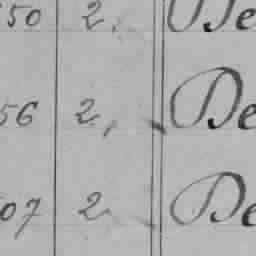 50 2. De
56 2, De
07 2 De